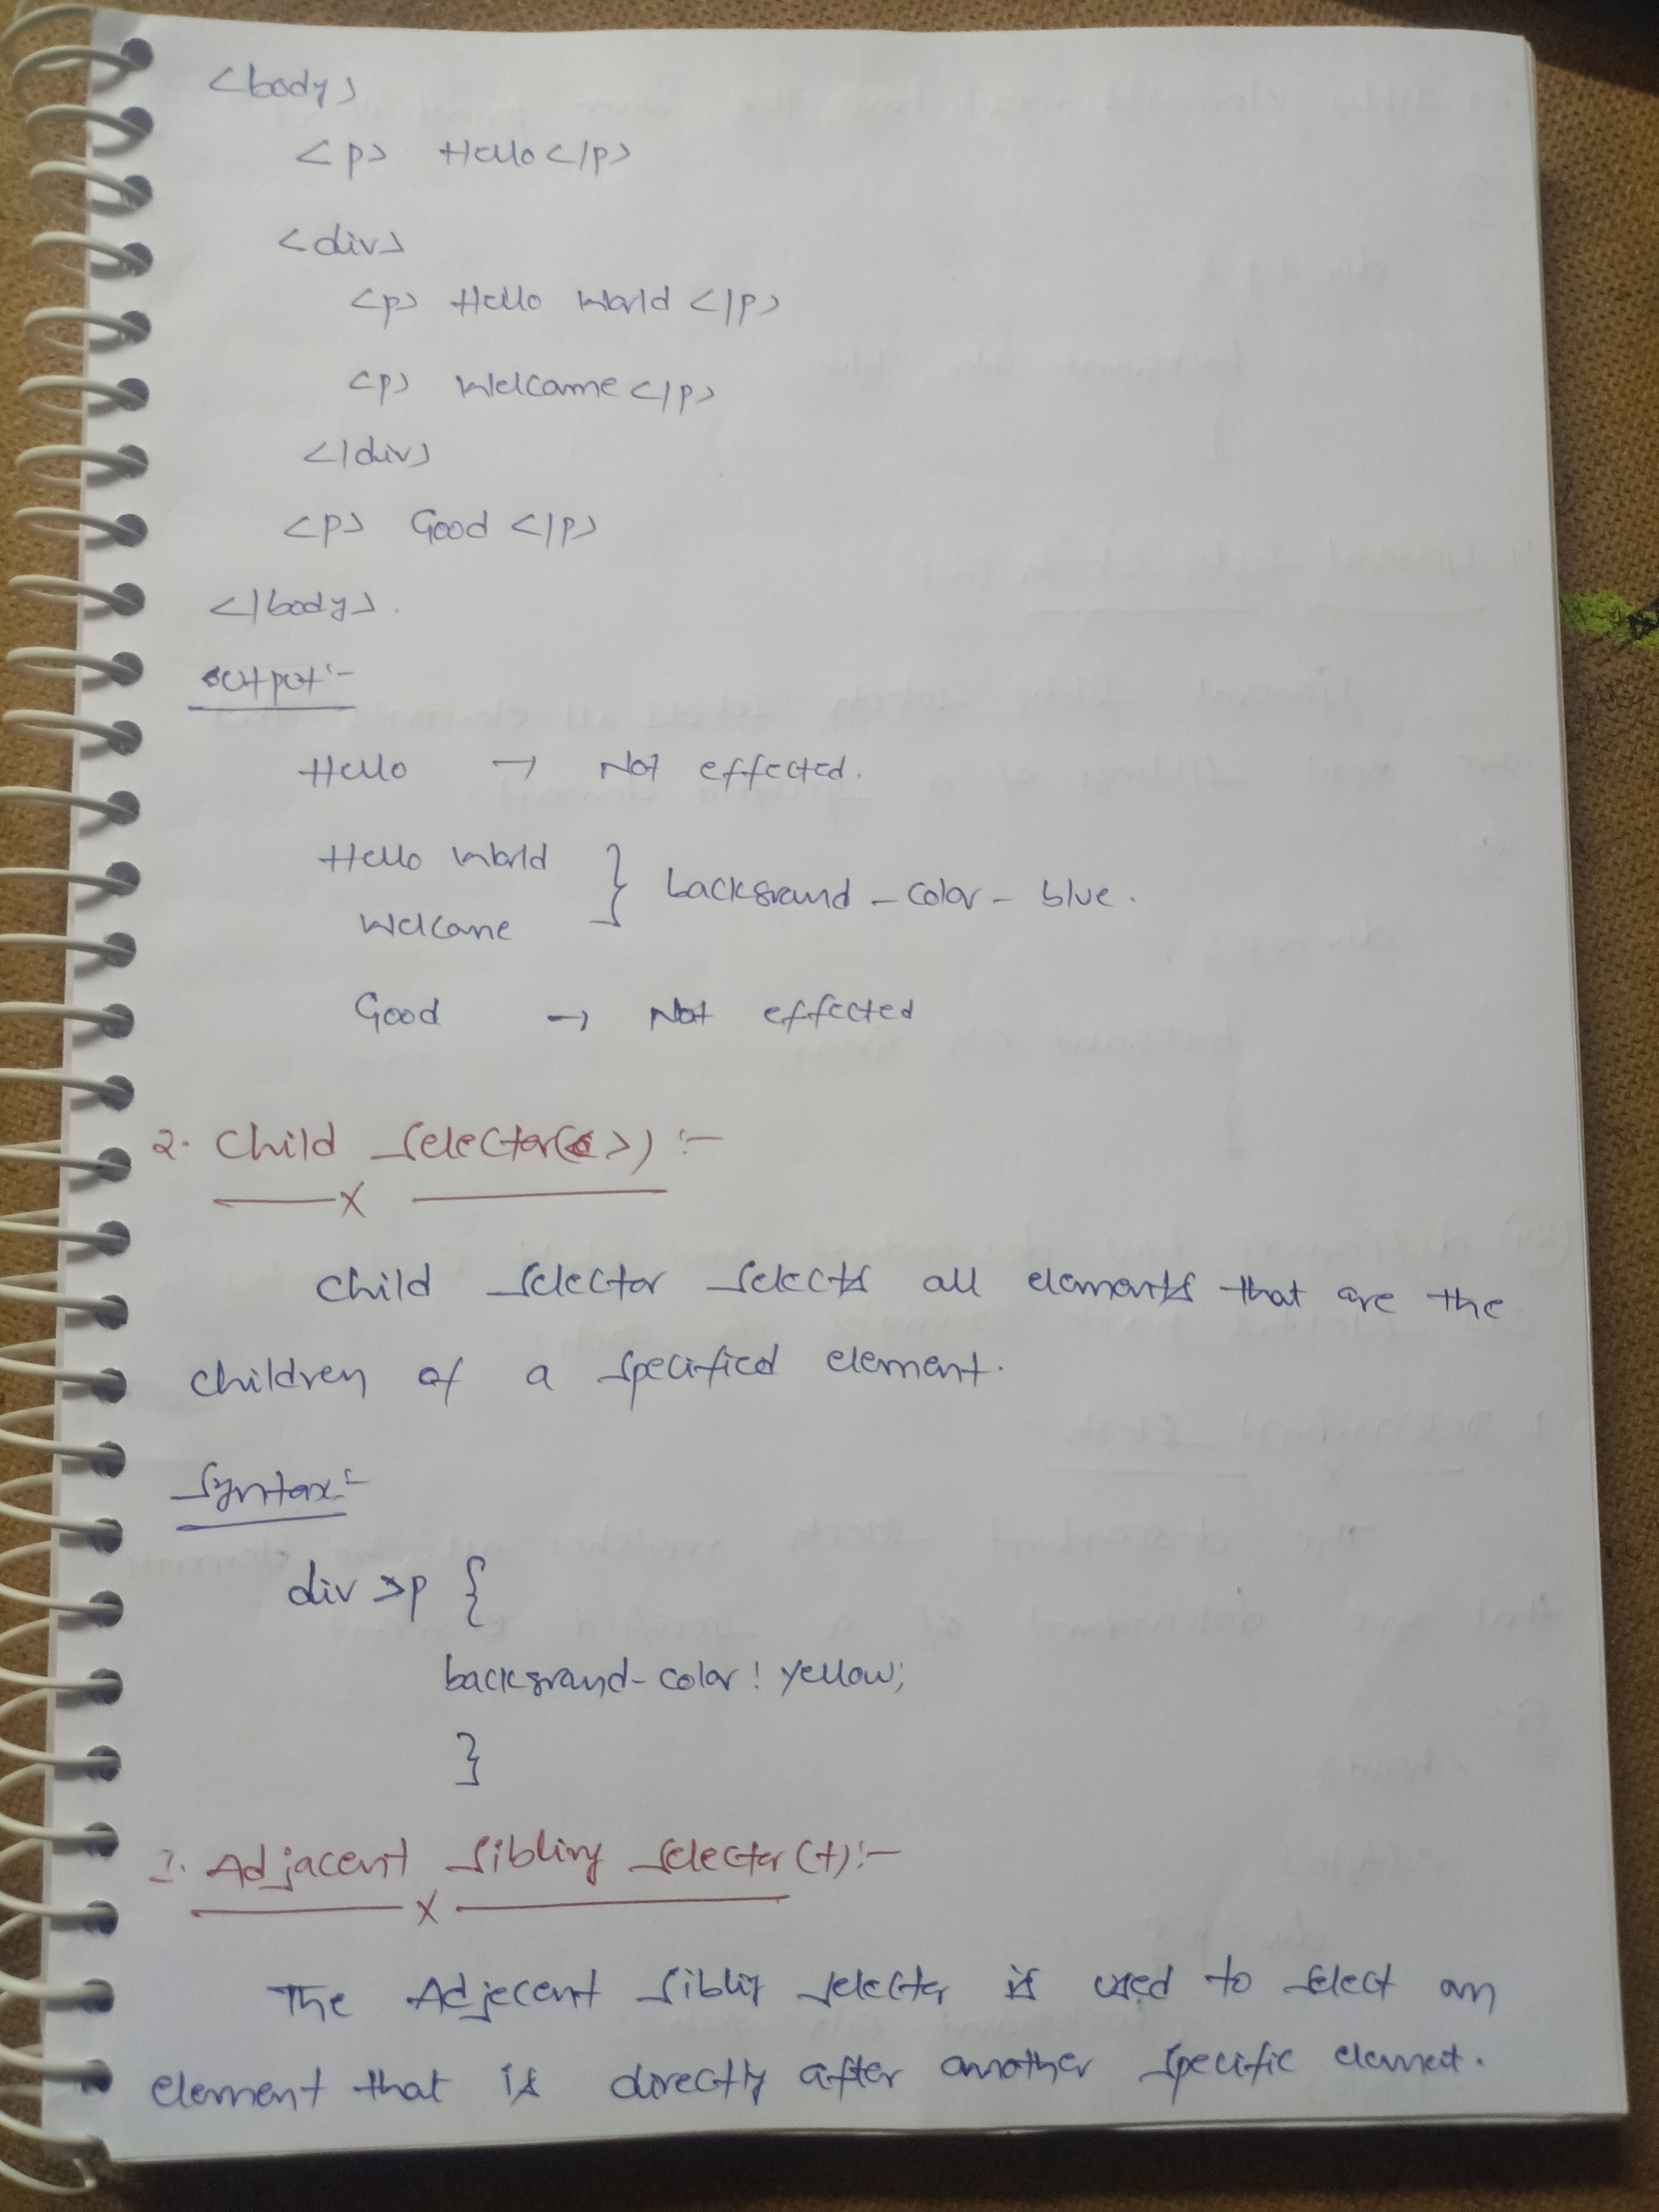 <body>
<p> Hello </p>
<div>
<p> Hello World </p>
<p> Welcome </p>
</div>
<p> Good </p>
</body>.
output:-
Hello → Not effected.
Hello World
Welcome } background - color - blue.
Good → Not effected
2. Child Selector(>) :-
Child Selector Selects all elements that are the
children of a Specified element.
Syntax:-
div >p {
background-color: yellow;
}
3. Adjacent Sibling Selector (+):-
The Adjecent Siblig Selector is used to Select an
element that is directly after another Specific element.